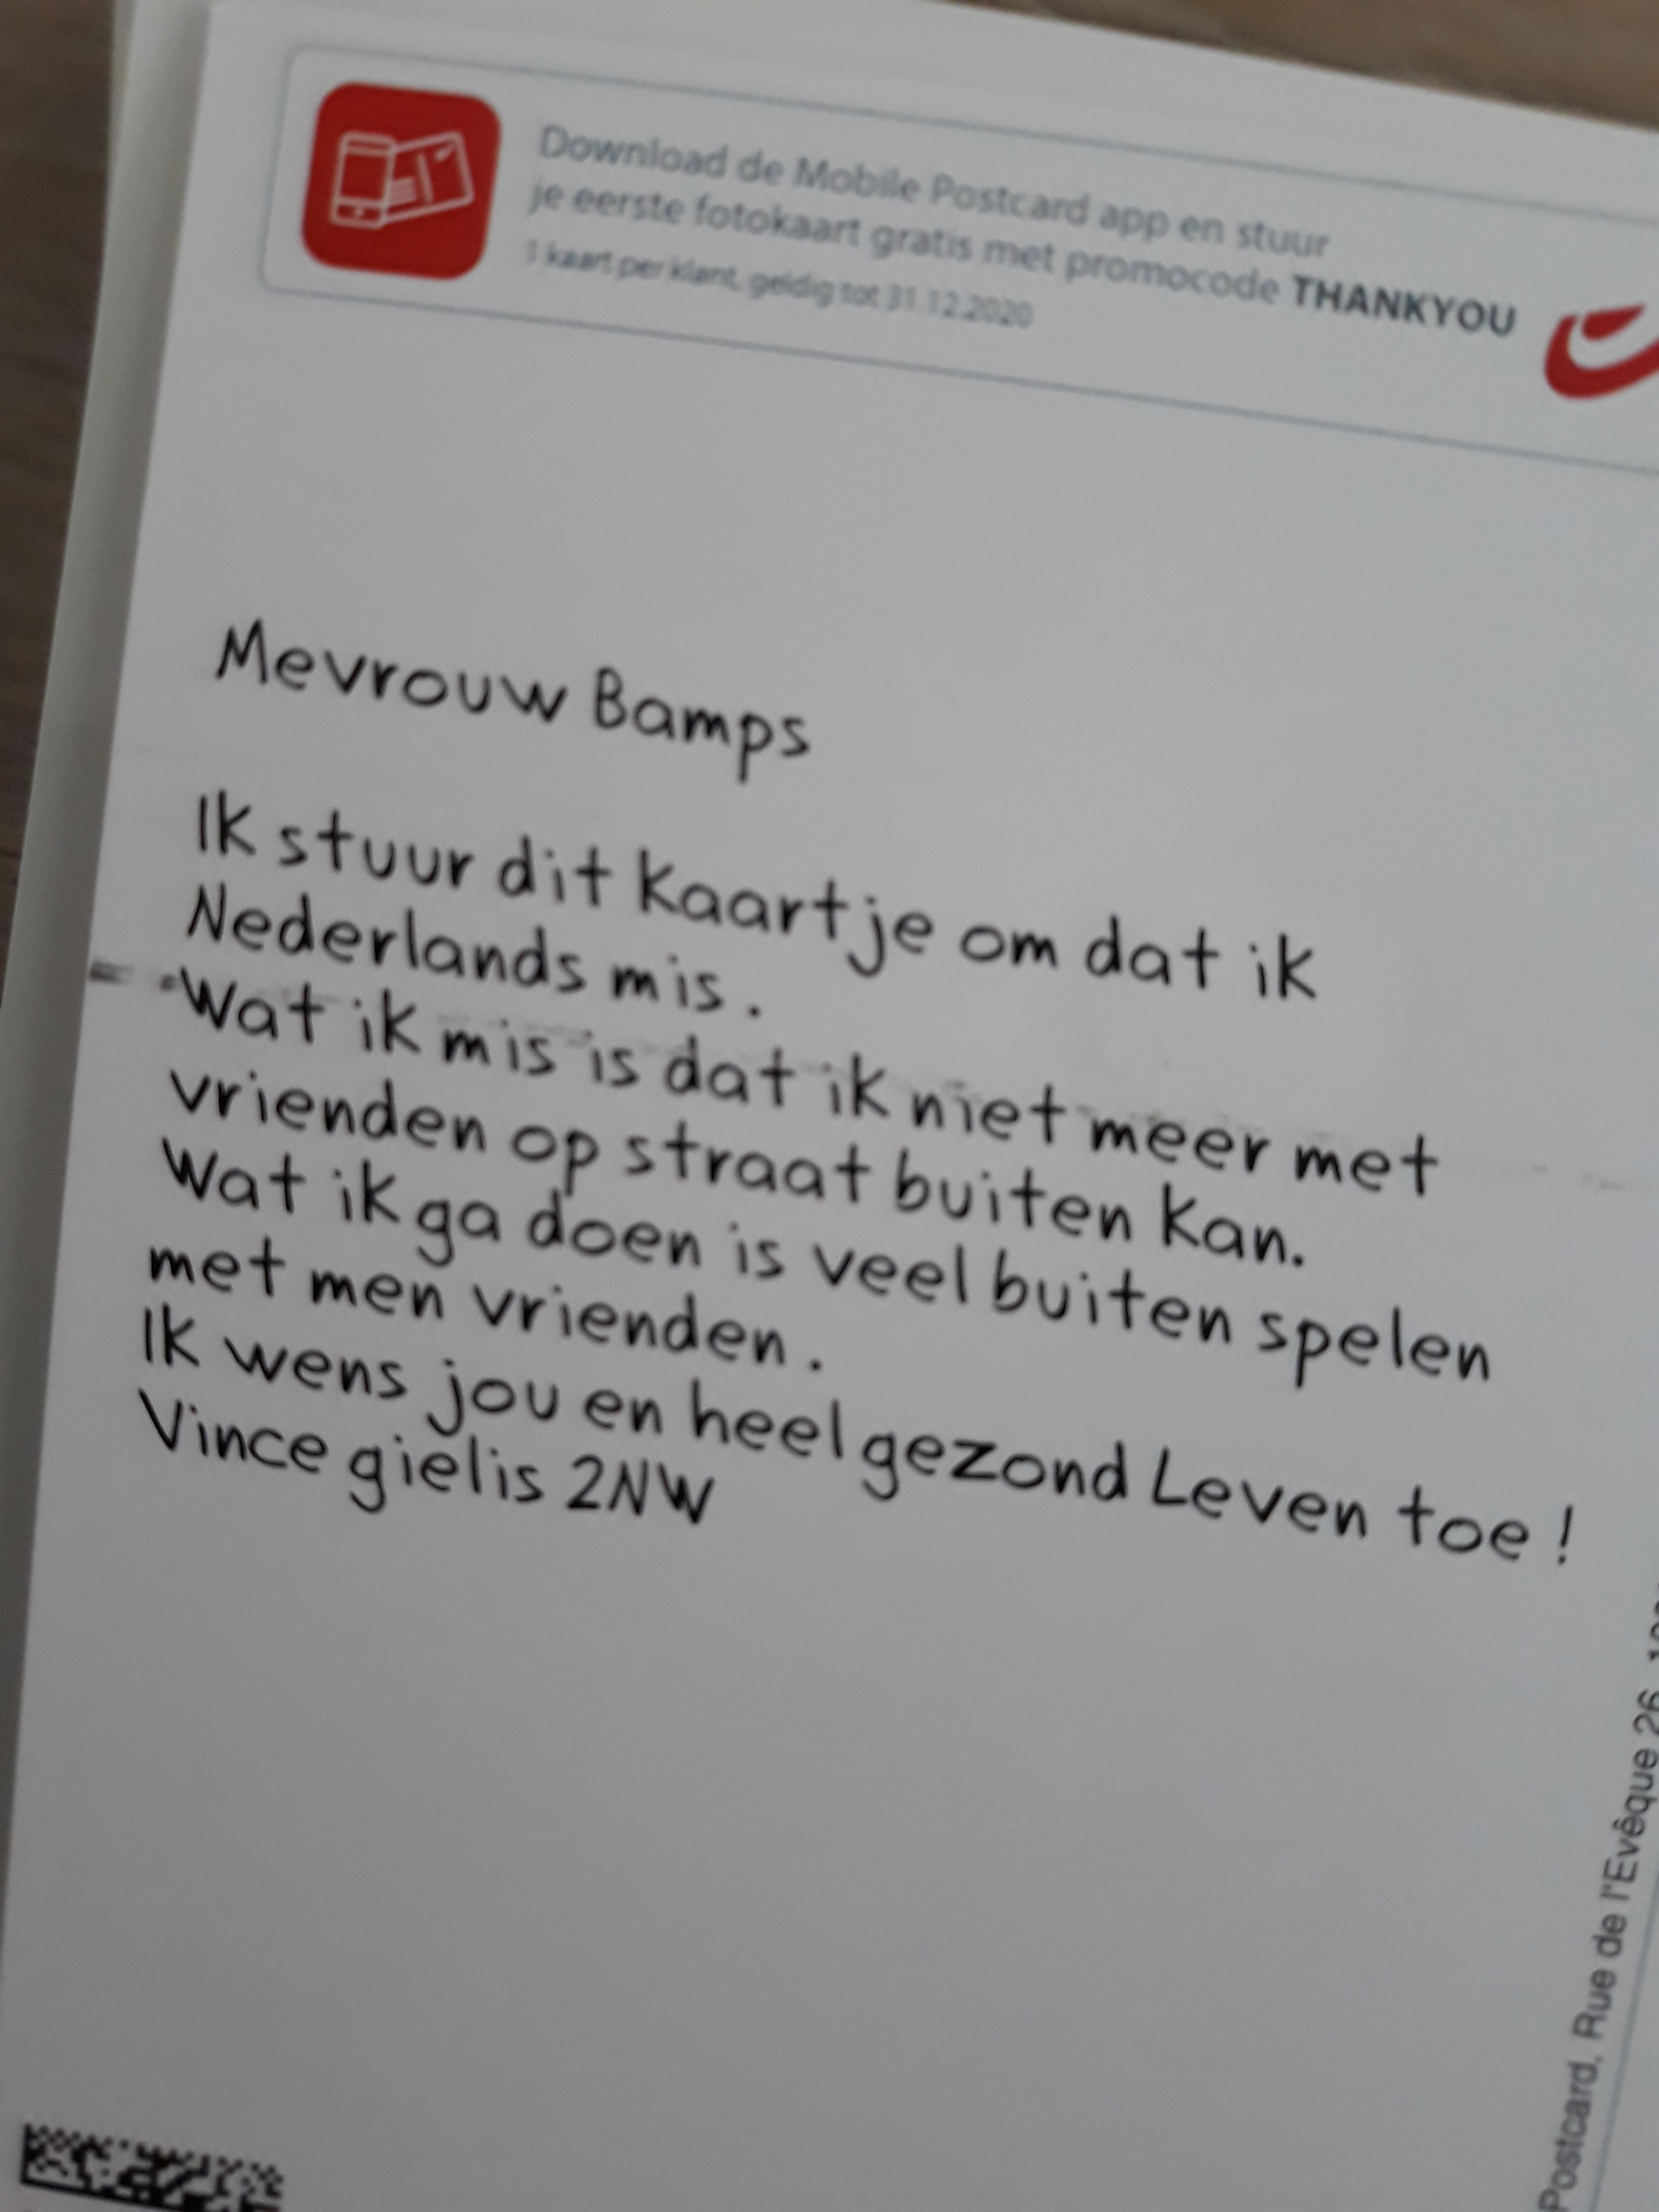 Download de Mobile Postcard app en stuur
je eerste fotokaart gratis met promocode THANKYOU
1 kaart per klant, geldig tot 31.12.2020
Mevrouw Bamps
Ik stuur dit kaartje om dat ik
Nederlands mis.
Wat ik mis is dat ik niet meer met
vrienden op straat buiten kan.
Wat ik ga doen is veel buiten spelen
met men vrienden.
Ik wens jou en heel gezond Leven toe!
Vince gielis 2NW
Postcard, Rue de l'Evêque 26,